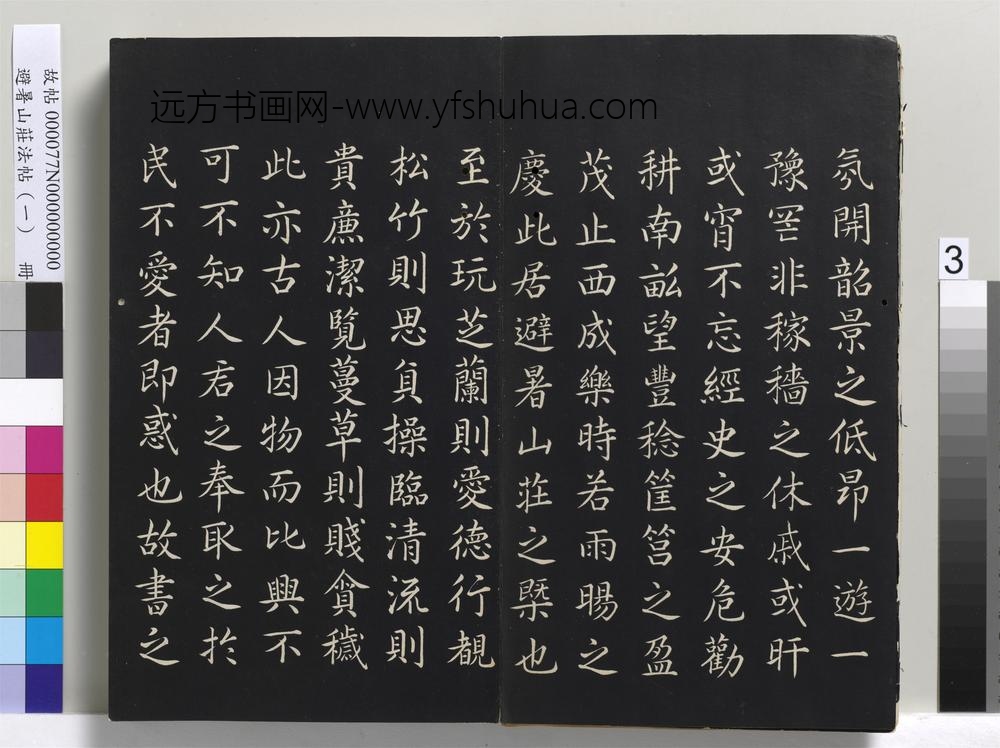 远方书画网-www.yfshuhua.com
氛開韶景之低昂一遊一
豫罔非稼穡之休戚或旰
或宵不忘經史之安危勸
耕南畝望豐稔筐筥之盈
茂止西成樂時若雨暘之
慶此居避暑山莊之槩也
至於玩芝蘭則愛德行覩
松竹則思貞操臨清流則
貴廉潔覽蔓草則賤貪穢
此亦古人因物而比興不
可不知人君之奉取之於
民不愛者即惑也故書之
故帖 000077N000000000
避暑山莊法帖(一) 冊
3